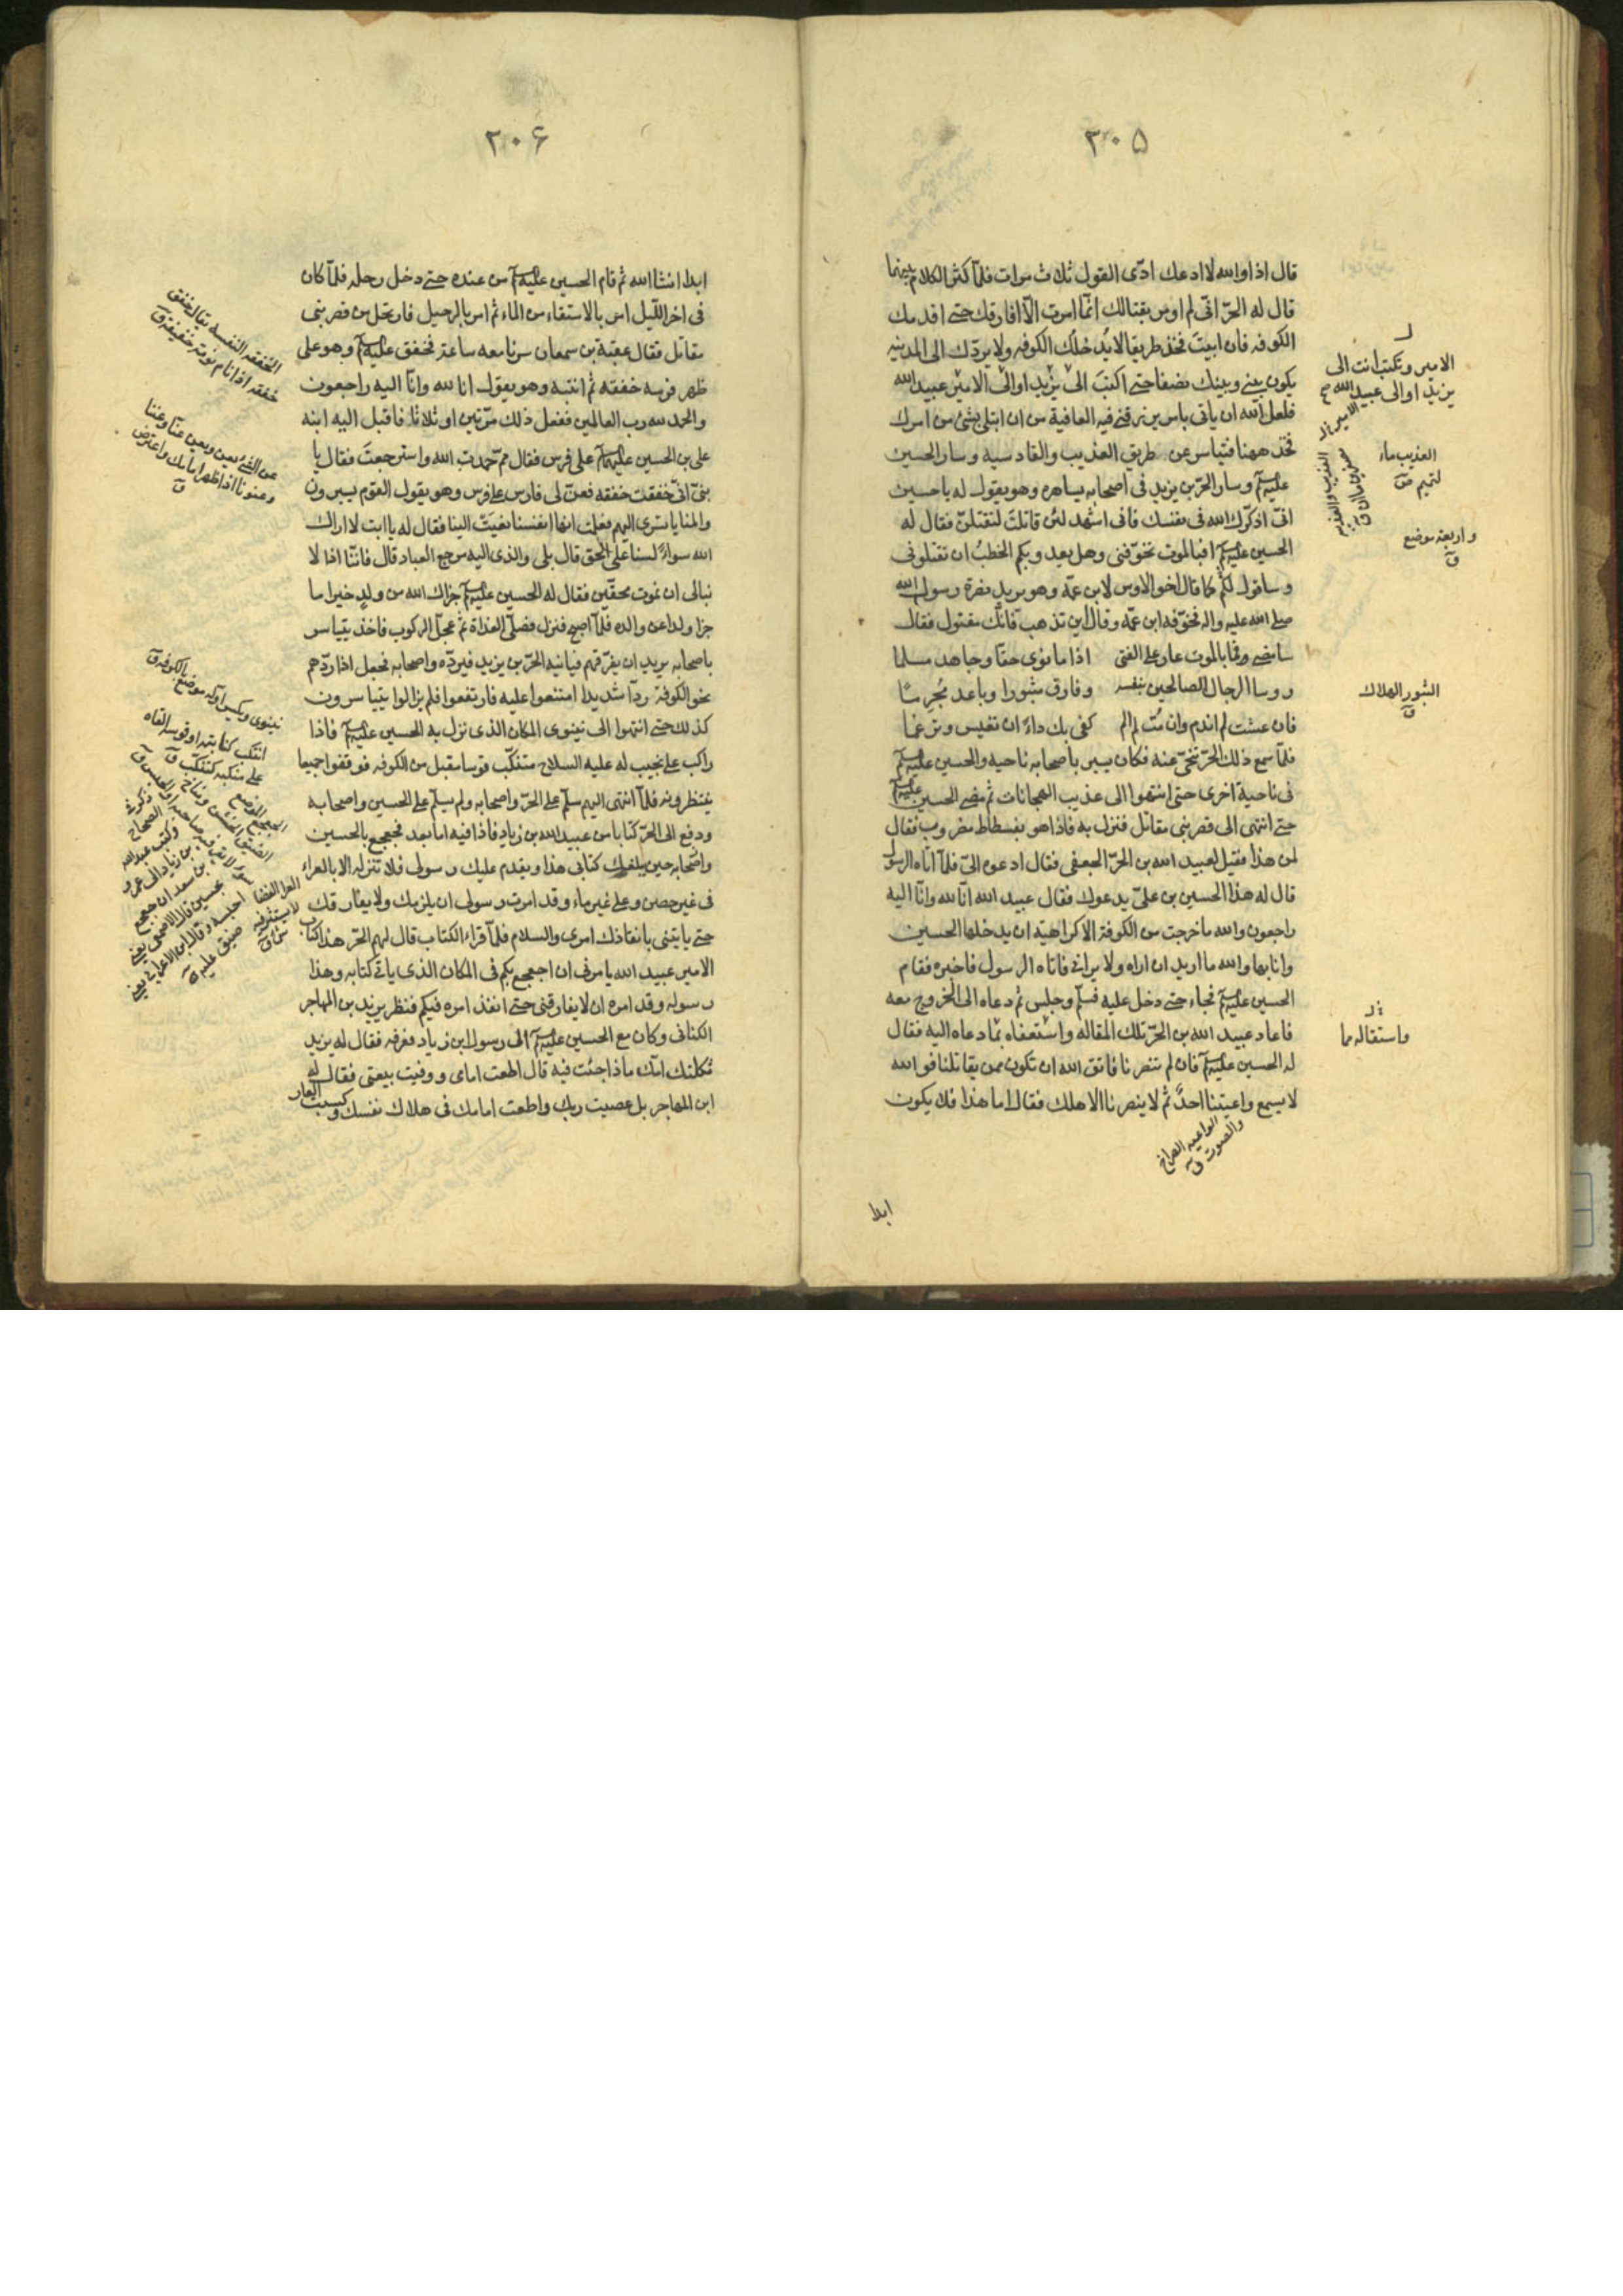 ٣٠٥
قال اذا والله لا ادعك ادّى القول ثلاث مرات فلمّا كثر الكلام بينهما
قال له الحرّ انّى لم اومر بقتالك انّما امرت الّا افارقك حتى اقدمك
الكوفه فان ابيتَ فخذ طريقا لا يُدخلُك الكوفه ولا يردّك الى المدينه
يكون بينى وبينك نصفا حتى اكتبَ الى يزيد او الى الامير عبيد الله
فلعل الله ان ياتى بامر يرزقنى فيه العافية من ان ابتلى بشئ من امرك
فخذ ههنا فتياسر عن طريق العذيب والقادسية وسار الحسين
عليه السلام وسار الحرّ بن يزيد فى اصحابه يسايره وهو يقول له يا حسين
انّى اذكّرك الله فى نفسك فانى اشهد لئن قاتلتَ لتقتلنّ فقال له
الحسين عليه السلام افبالموت تخوّفنى وهل يعد وبكم الخطبُ ان تقتلونى
وساقول لكم كما قال اخو الاوس لابن عمّه وهو يريد نصرة رسول الله
صلى الله عليه واله فخوّفه ابن عمّه وقال اين تذهب فانّك مقتول فقال
سامضى وما بالموت عار على الفتى اذا ما نوى حقّا وجاهد مسلما
وواسا الرجال الصالحين بنفسه وفارق مثبورا وباعد مُجرمًا
فان عشت لم اندم وان مُت لم الم كفى بك داءً ان تعيش وترغما
فلمّا سمع ذلك الحرّ تنحّى عنه فكان يسير باصحابه ناحية والحسين عليه السلام
فى ناحية اخرى حتى انتهوا الى عذيب الهجانات ثم مضى الحسين عليه السلام
حتى انتهى الى قصر بنى مقاتل فنزل به فاذا هو بفسطاط مضروب فقال
لمن هذا فقيل لعبيد الله بن الحرّ الجعفى فقال ادعوه الىّ فلمّا اتاه الرسول
قال له هذا الحسين بن علىّ يدعوك فقال عبيد الله انّا لله وانّا اليه
راجعون والله ما خرجت من الكوفة الا كراهية ان يدخلها الحسين
وانا بها والله ما اريد ان اراه ولا يرانى فاتاه الرسول فاخبره فقام
الحسين عليه السلام فجاء حتى دخل عليه فسلّم وجلس ثم دعاه الى الخروج معه
فاعاد عبيد الله بن الحرّ تلك المقاله واستعفاه ممّا دعاه اليه فقال
له الحسين عليه السلام فان لم تنصرنا فاتق الله ان تكون ممن يقاتلنا فوالله
لا يسمع واعيتنا احدٌ ثم لا ينصرنا الا هلك فقال اما هذا فلا يكون
الواعيه الصراخ
والصوت ق
ابدا
الامير وتكتب انت الى
يزيد او الى عبيد الله
العذيب ماء
لتميم
واربعة موضع
ق
الثبور الهلاك
ق
واستقاله مما
٣٠۶
ابدا انشا الله ثم قام الحسين عليه السلام من عنده حتى دخل رحله فلمّا كان
فى اخر اللّيل امر بالاستقاء من الماء ثم امر بالرحيل فارتحل من قصر بنى
مقاتل فقال عقبة بن سمعان سرنا معه ساعة فخفق عليه السلام وهو على
ظهر فرسه خفقه ثم انتبه وهو يقول انا لله وانّا اليه راجعون
والحمد لله رب العالمين ففعل ذلك مرّتين او ثلاثا فاقبل اليه ابنه
على بن الحسين عليهما السلام على فرس فقال ممّ حمدت الله واسترجعتَ فقال يا
بنىّ انّى خفقت خفقه فعنّ لى فارس على فرس وهو يقول القوم يسيرون
والمنايا تسرى اليهم فعلمت انها انفسنا نُعِيَت الينا فقال له يا ابت لا اراك
الله سواءً لسنا على الحق قال بلى والذى اليه مرجع العباد قال فانّنا اذا لا
نبالى ان نموت محقّين فقال له الحسين عليه السلام جزاك الله من ولدٍ خيرا ما
جزا ولدا عن والده فلمّا اصبح فنزل فصلّى الغداة ثم عجّل الركوب فاخذ يتياسر
باصحابه يريد ان يفرّقهم فياتيه الحرّ بن يزيد فيردّه واصحابه فجعل اذا ردّهم
نحو الكوفة ردّا شديدا امتنعوا عليه فارتفعوا فلم يزالوا يتياسرون
كذلك حتى انتهوا الى نينوى المكان الذى نزل به الحسين عليه السلام فاذا
راكب على نجيب له عليه السلاح متنكّب قوسا مقبل من الكوفه فوقفوا جميعا
ينتظرونه فلمّا انتهى اليهم سلّم على الحرّ واصحابه ولم يسلّم على الحسين واصحابه
ودفع الى الحرّ كتابا من عبيد الله بن زياد فاذا فيه امّا بعد فجعجع بالحسين
واصحابه حين يبلغك كتابى هذا ويقدم عليك رسولى فلا تنزله الا بالعراء
فى غير حصن وعلى غير ماء وقد امرت رسولى ان يلزمك ولا يفارقك
حتى ياتينى بانفاذك امرى والسلام فلمّا قراء الكتاب قال لهم الحرّ هذا كتاب
الامير عبيد الله يامرنى ان اجعجع بكم فى المكان الذى ياتى كتابه وهذا
رسوله وقد امره ان لا يفارقنى حتى انفذ امره فيكم فنظر يزيد بن المهاجر
الكنانى وكان مع الحسين عليه السلام الى رسول ابن زياد فعرفه فقال له يزيد
ثكلتك امّك ماذا جئت فيه قال اطعت امامى ووفيت ببيعتى فقال له
ابن المهاجر بل عصيت ربك واطعت امامك فى هلاك نفسك وكسبت العار
الخفقه النعسة يقال خفق
خفقه اذا نام نومة خفيفة ق
عن الشئ يعن ويعن عنّا وعننا
وعنونا اذا ظهر امامك واعترض
ق
نينوى بكسر اوله موضع بالكوفه ق
انتكب كنانته او قوسه القاه
على منكبه كتنكّب ق